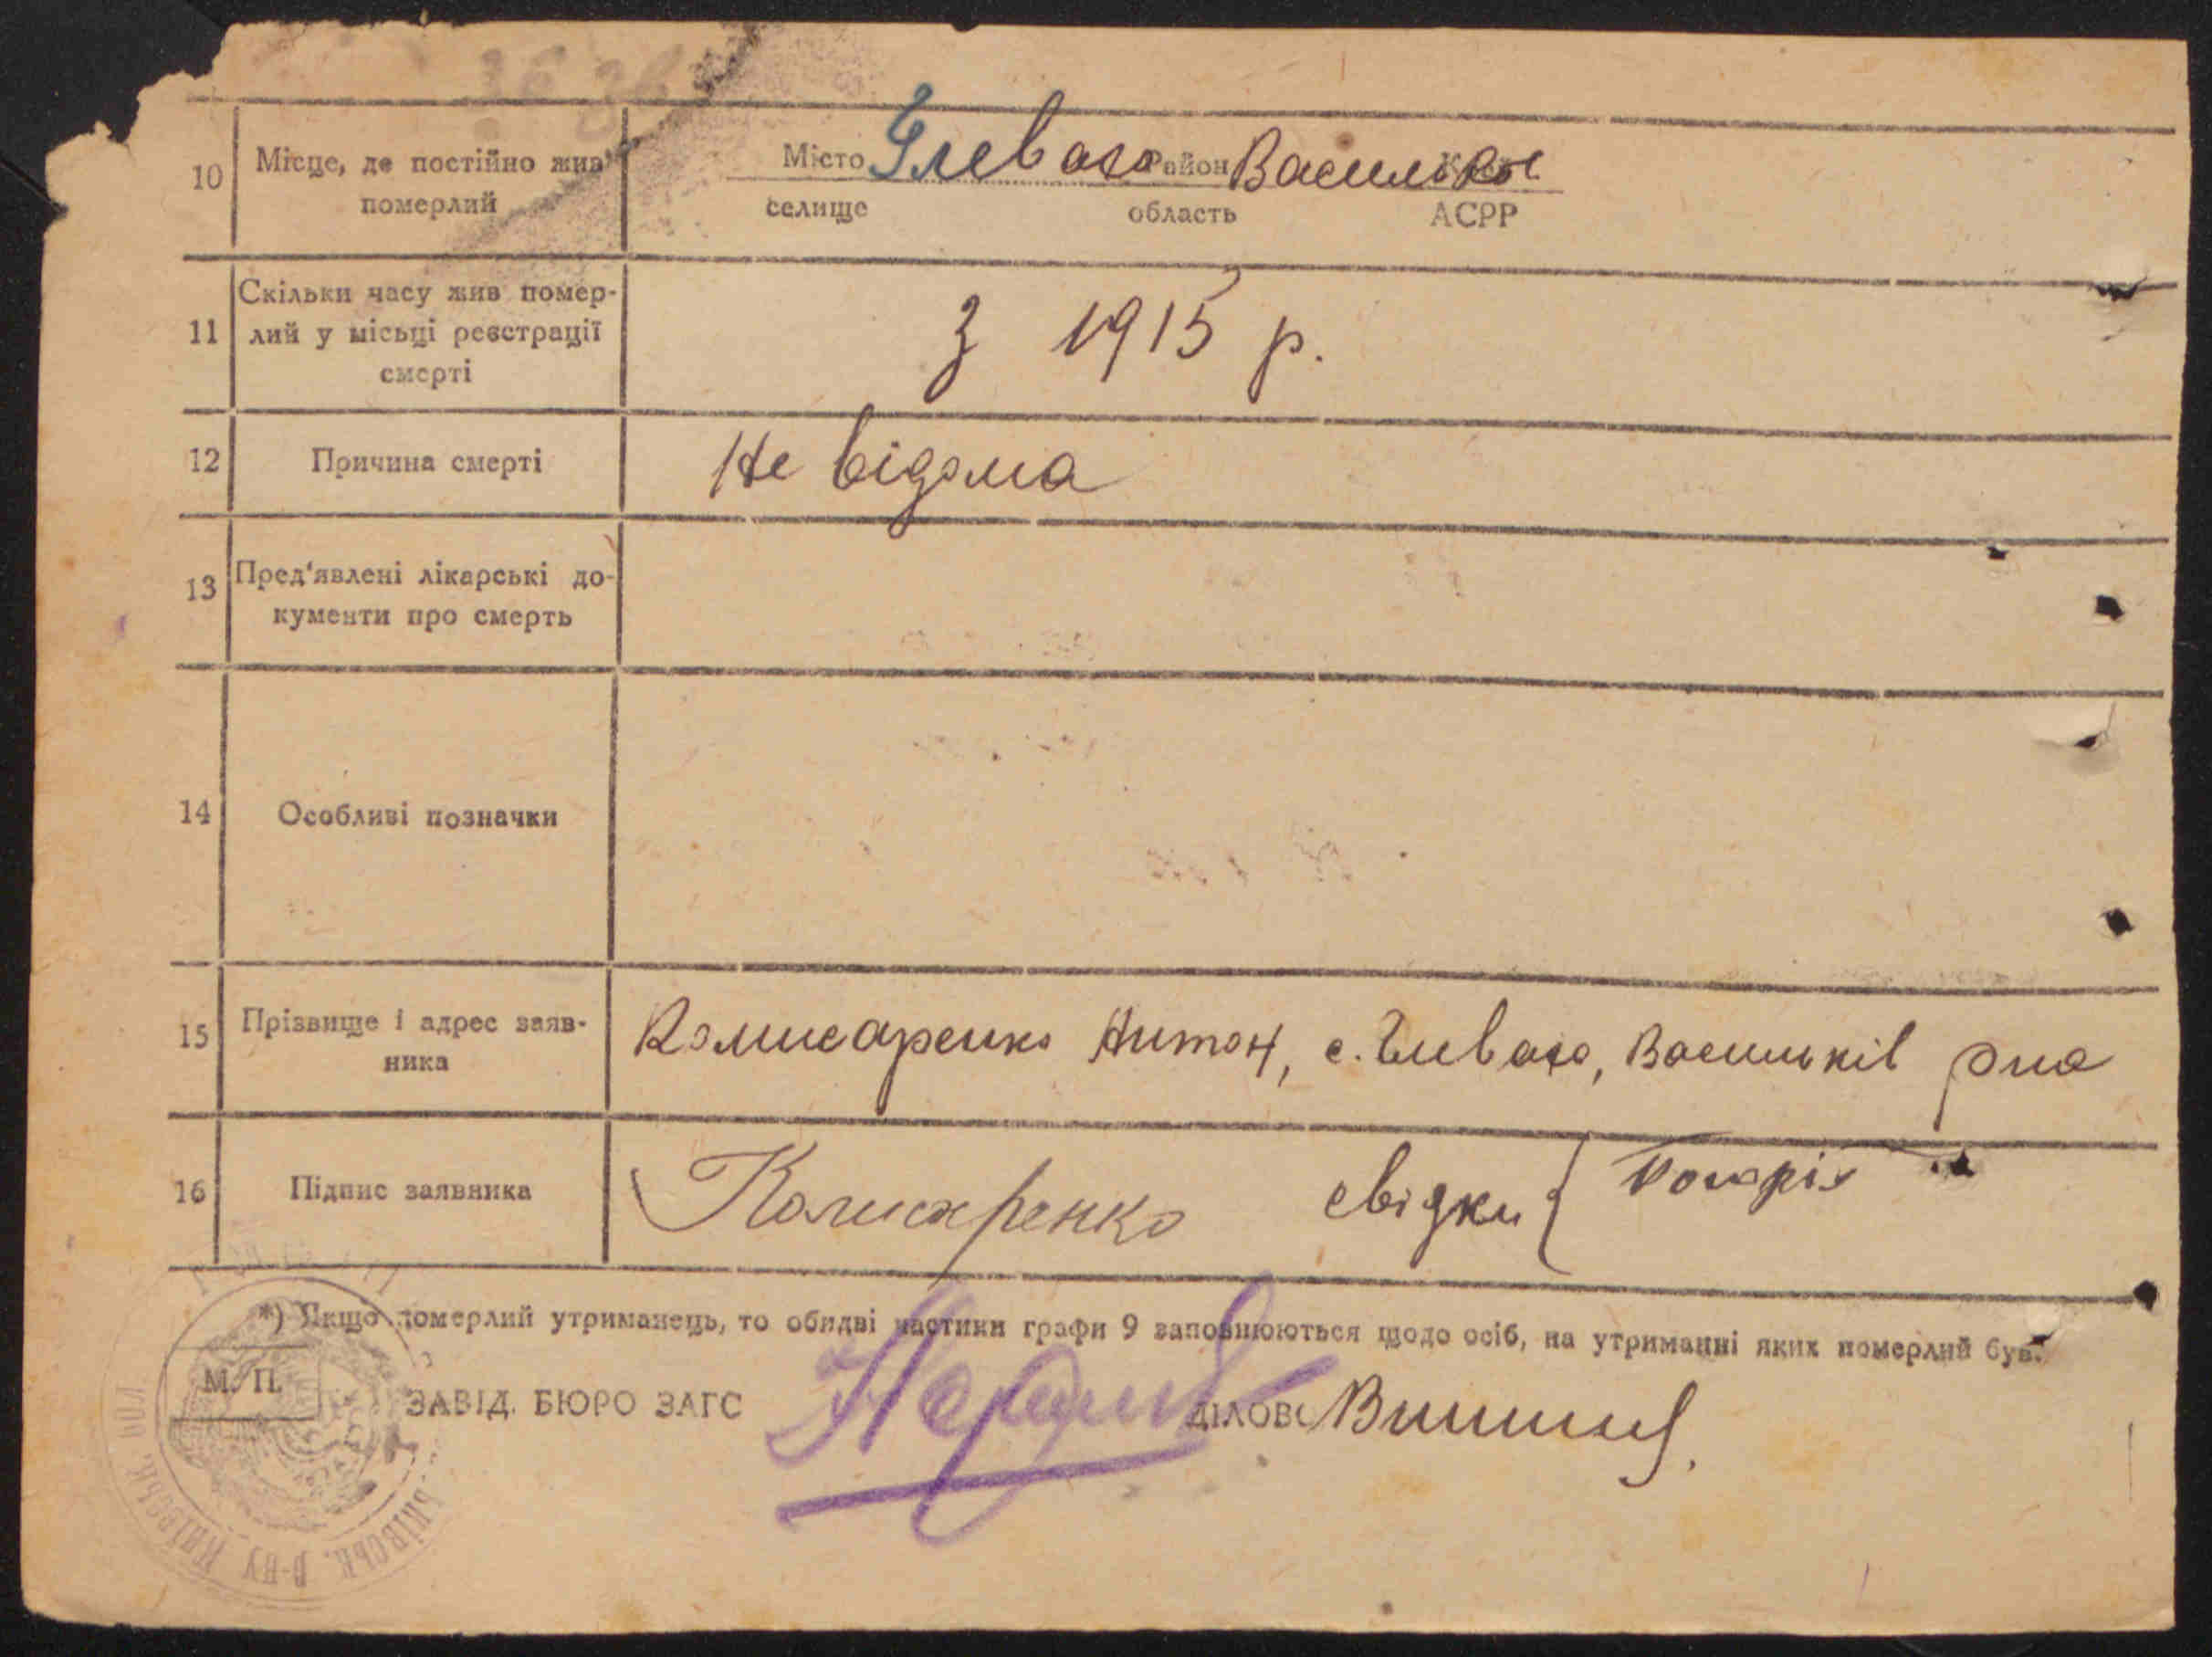 10 Місце, де постійно жив Місто Глеваха Район Василькове
померлий селище область АСРР
Скільки часу жив помер-
11 лий у місьці реєстрації З 1915 р.
смерті
12 Причина смерті Не відома
13 Пред'явлені лікарські до-
кументи про смерть
14 Особливі позначки
15 Прізвище і адрес заяв- Комисаренко Антон, с. Глеваха, Васильків рна
ника
16 Підпис заявника Комисаренко свідки {
*) Якщо померлий утриманець, то обидві частини графи 9 заповнюються щодо осіб, на утриманні яких померлий був.
М. П.
ЗАВІД. БЮРО ЗАГС ДІЛОВ